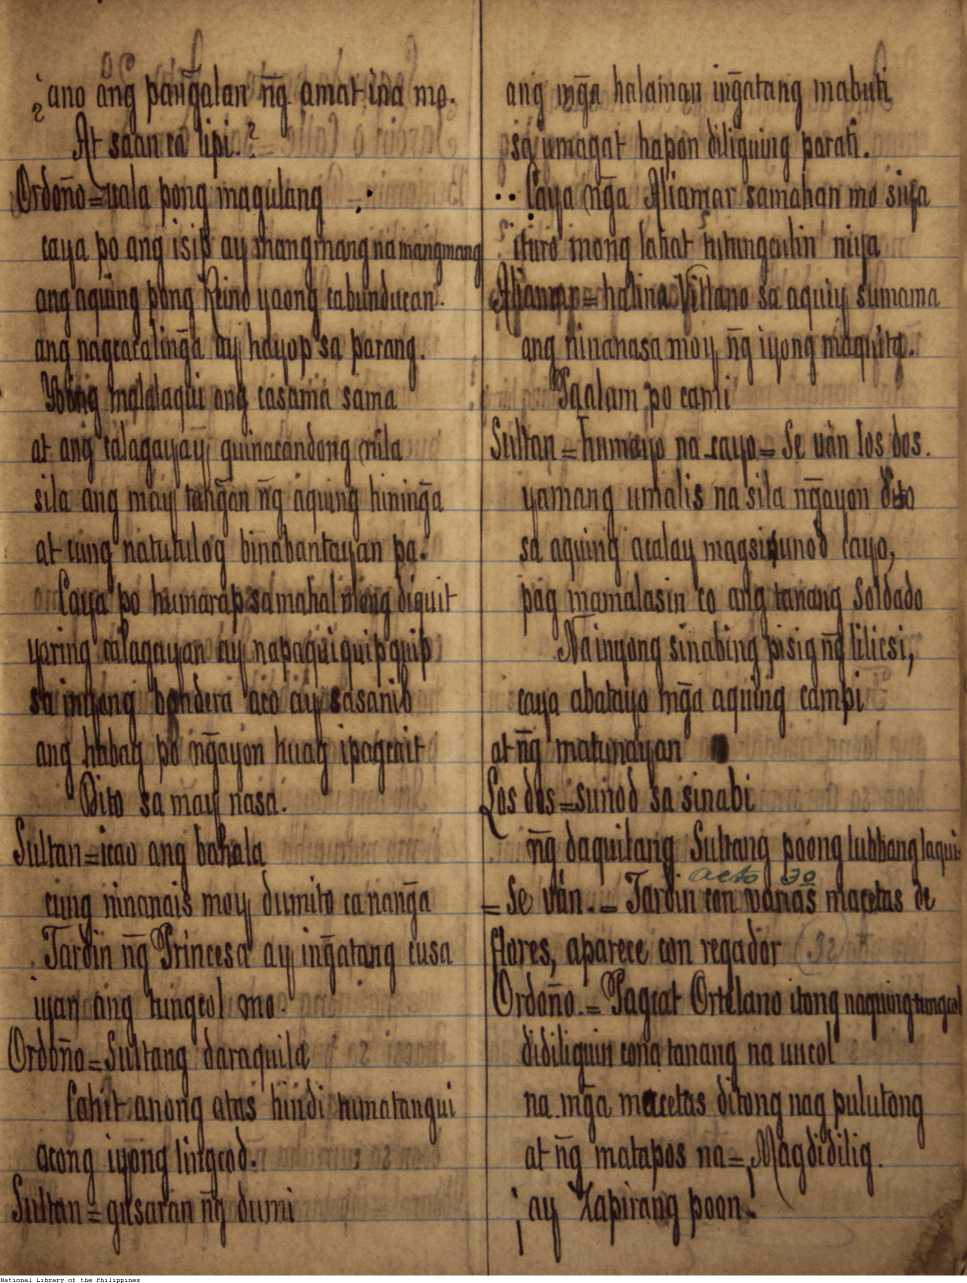 ¿ano ang pan̄galan n̄g amat ina mo.
At saan ca lipi.?
Ordoño=uala pong magulang
caya po ang isip ay mangmang na mangmang
ang aquing pong Reino yaong cabunducan.
ang nagcacalin̄ga ay hayop sa parang.
Yaong malalaqui ang casama sama
at ang calagayay guinacandong nila
sila ang may tan̄gan n̄g aquing hinin̄ga
at cung natutulog binabantayan pa.
Caya po humarap samahal mong diquit
yaring calagayan ay napaquiquipquip
sa inyong bandera aco ay sasanib
ang habag po n̄gayon huag ipagcait
Dito sa may nasa.
Sultan=icao ang bahala
cung ninanais moy dumito ca nan̄ga
Jardin n̄g Princesa ay in̄gatang cusa
iyan ang tungcol mo.
Ordoño=Sultang daraquila
Cahit anong atas hindi tumatangui
acong iyong lingcod.
Sultan=gusaran n̄g dumi
ang mn̄ga halaman in̄gatang mabuti
sa umagat hapon diliguing parati.
Caya n̄ga Aliamar samahan mo siya
ituro mong lahat tutungculin niya
Aliamar=halina Villano sa aquiy sumama
ang ninanasa moy n̄g iyong maquita.
Paalam po cami
Sultan=humayo na cayo=Se ván los dos.
yamang umalis na sila n̄gayon dito
sa aquing acalay magsisunod cayo,
pag mamalasin co ang tanang Soldado
Na inyong sinabing pisig n̄g lilicsi,
caya abatayo mn̄ga aquing campi
at n̄g matunayan
Los dos=sunod sa sinabi
n̄g daquilang Sultang poong lubhang laqui.
acto 3o
=Se ván.=Jardin con varias macetas de
flores, aparece con regador (32
Ordoño.=Pagcat Ortelano itong naguing tungcol
didiliguin cong tanang na uucol
na mga macetas ditong nag pulutong
at n̄g matapos na=Magdidilig.
¡ay Zapirang poon!
National Library of the Philippines